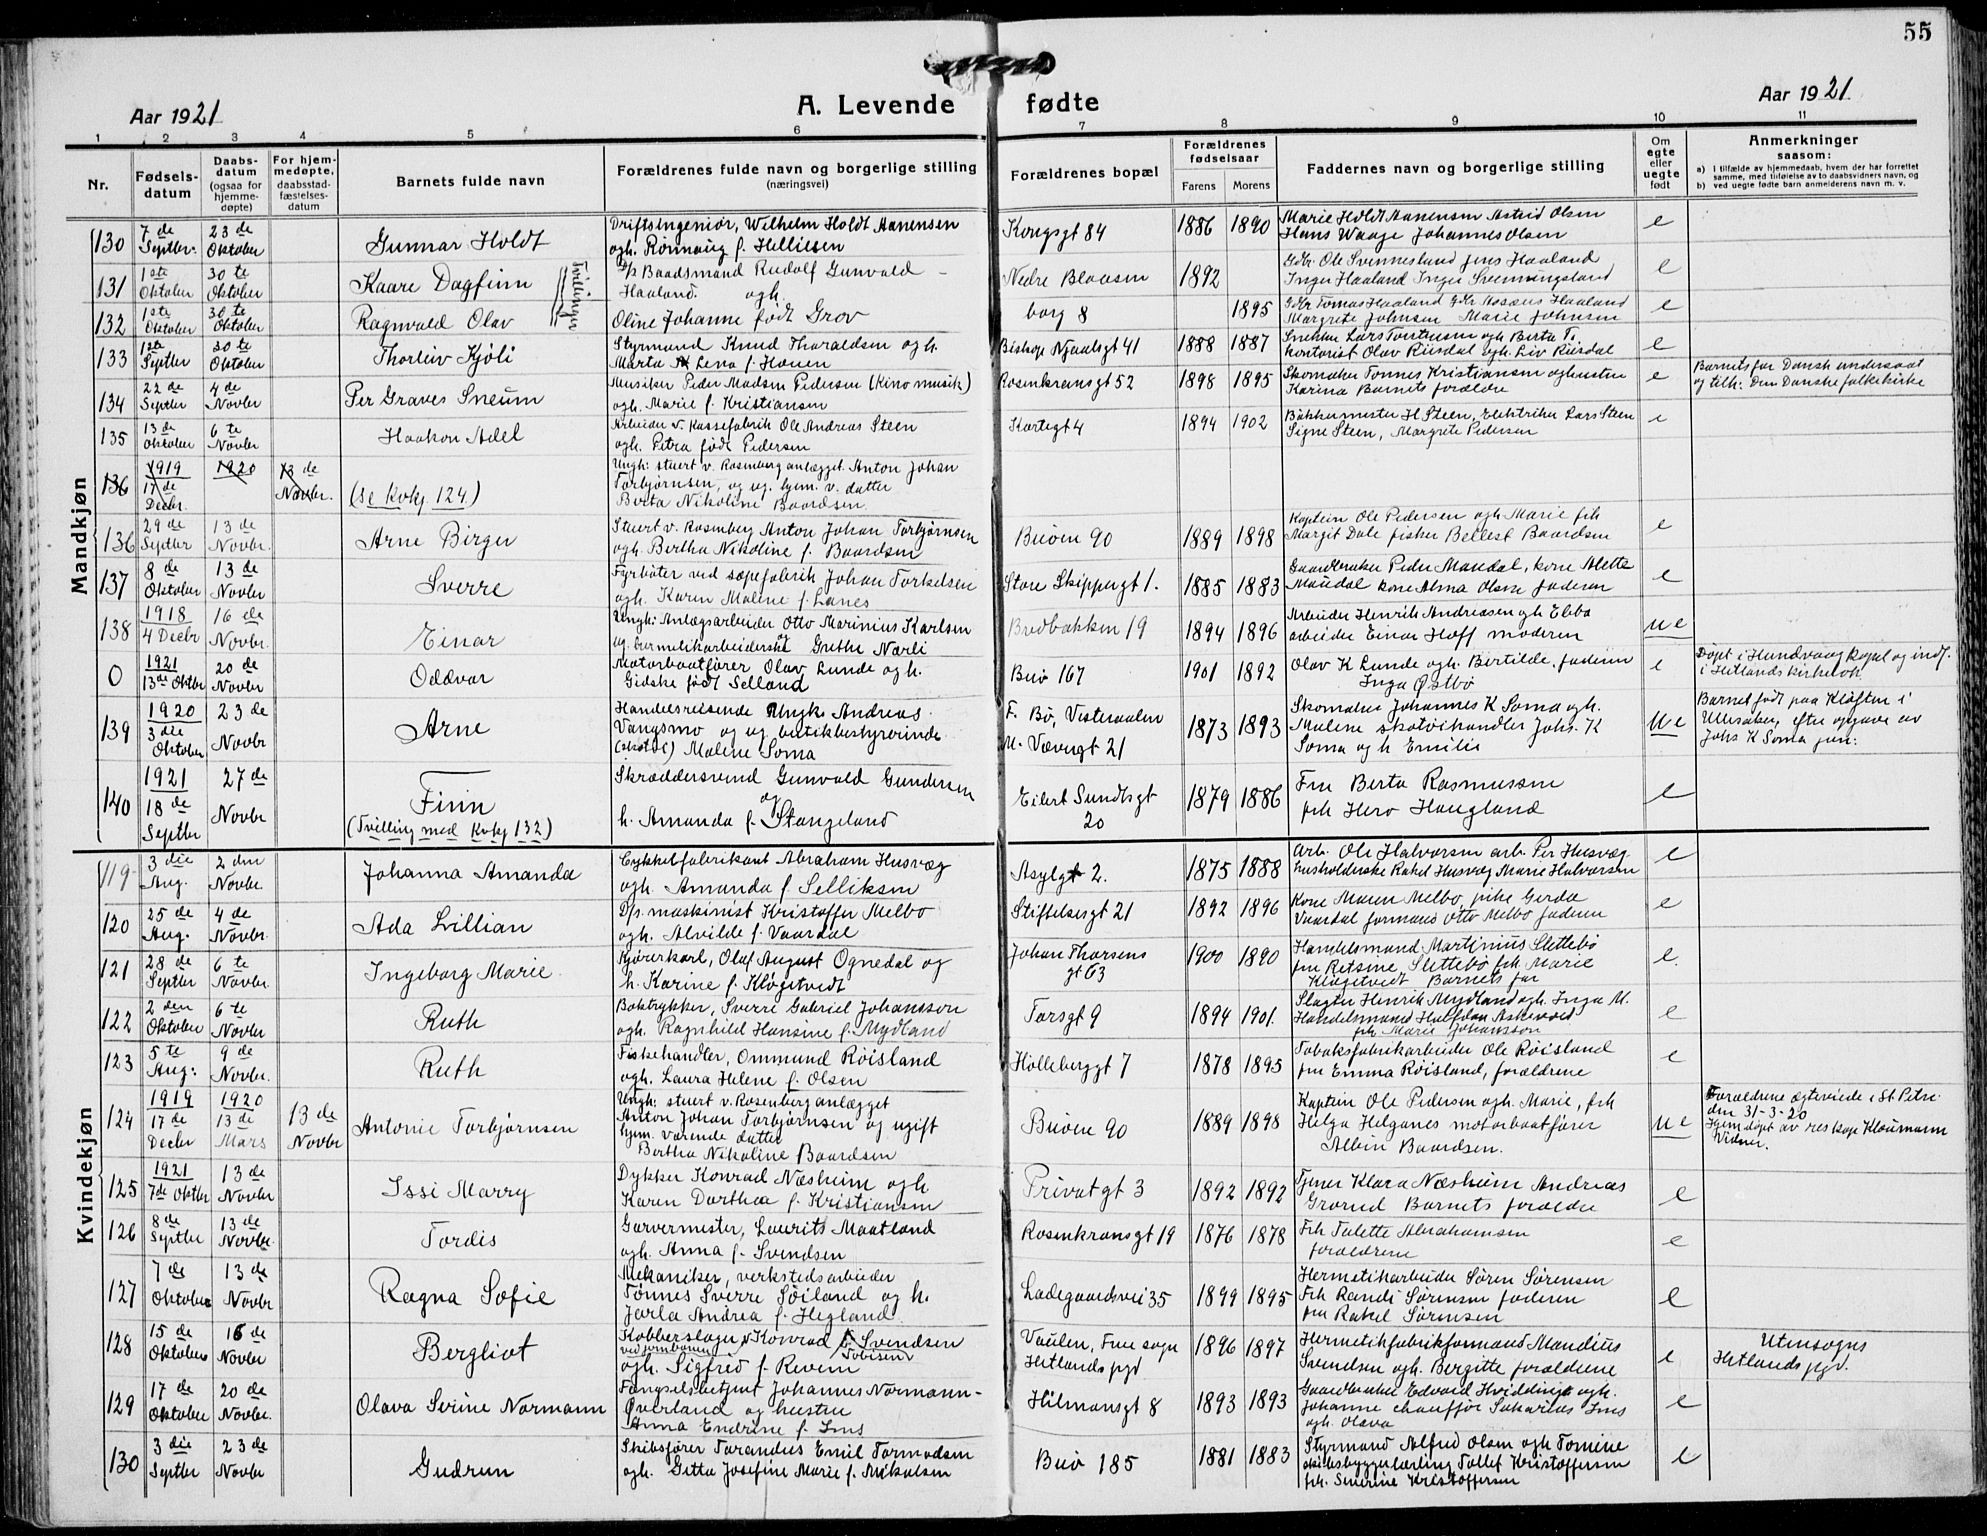 55
Aar 1921
A. Levende fødte
Aar 1921
1 2 3 4 5 6 7 8 9 10 11
Nr.
Fødsels-datum
Daabs-datum (ogsaa for hjemme-døpte)
For hjem-medøpte, daabsstad-fæstelses-datum
Barnets fulde navn
Forældrenes fulde navn og borgerlige stilling (næringsvei)
Forældrenes bopæl
Forældrenes fødselsaar
Farens Morens
Faddernes navn og borgerlige stilling
Om egte eller uegte født
Anmerkninger saasom:
a) I tilfælde av hjemmedaab, hvem der har forrettet samme, med tilføielse av to daabsvidners navn, og
b) ved uegte fødte barn anmelderens navn m. v.
Mandkjøn
130 7de Septbr. 23de Oktober Gunnar Holdt
Driftsingeniør, Wilhelm Holdt Aanensen
ogh. Rønnaug f. Helliesen
Kongsgt 84 1886 1890
Marie Holdt Aanensen Astrid Olsen
Hans Waage Johannes Olsen
e
131 1ste Oktober 30te Oktober Kaare Dagfinn
Tvillinger
D/s Baadsmand Rudolf Gunvald
Haaland. ogh.
Nedre Blaasen 1892
Gdbr. Ole Svennesland Jens Haaland
Inger Haaland Inga Svenningsland
e
132 1ste Oktober 30te Oktober Ragnvald Olav
Oline Johanne født Grov
borg 8 1895
Gdbr Tomas Haaland Gdbr Haaland
Margrete Johnsen Marie Johnsen
e
133 1ste Septbr 30te Oktober Thorleiv Kjøli
Styrmand Knud Tharaldsen ogh.
Marta Lena f. Hauen
Bishop Njaalsgt 41 1888 1887
Snekker Lars Torstensen ogh. Berta T.
kontorist Olav Riisdal ogh. Liv Riisdal
e
134 22de Septbr 4de Novbr Per Graves Sneum
Musiker Peder Madsen Pedersen (Kino musik)
ogh. Marie f. Kristiansen
Rosenkransgt 52 1898 1895
Skomaker Tønnes Kristiansen oghustru
Karina Barnets forældre
e
Barnets far Dansk undersaat
og tilh: Den Danske folkekirke
135 13de Oktober 6te Novbr Haakon Adel
Arbeider v. Kassefabrik Ole Andreas Steen
ogh. Petra født Pedersen
Kortegt 4 1894 1902
Bøkkermester H Steen, Elektriker Lars Steen
Signe Steen, Margrete Pedersen
e
136 1919 17de Decbr. 1920 13de Novbr. (se Kvkj. 124)
Ungk: stuert v. Rosenberg anlægget Anton Johan
Torbjørnsen, og ug. hjem. v. datter
Berta Nikoline Baardsen
136 29de Septbr 13de Novbr. Arne Birger
Stuert v. Rosenberg Anton Johan Torbjørnsen
ogh. Bertha Nikoline f. Baardsen
Buøen 90 1889 1898
Kaptein Ole Pedersen ogh Marie frk
Margit Dale fisker Bellest Baardsen
e
137 8de Oktober 13de Novbr Sverre
Fyrbøter ved sæpefabrik Johan Torkelsen
ogh. Karen Malene f. Lanes
Store Skippergt 1. 1885 1883
Gaardbruker Peder Mandal, kone Alette
Mandal kone Alma Olsen faderen
e
138 1918 4 Decbr 16de Novbr. Einar
Ungk: Anlægsarbeider Otto Marinius Karlsen
ug. hermetikarbeiderske Grethe Nærli
Bredbakken 19 1894 1896
Arbeider Henrik Andreasen ogh Ebba
arbeider Einar Hoff moderen
ue
0 1921 13de Oktbr 20de Novbr Oddvar
Motorbaatfører Olav Lunde ogh.
Gidske født Selland
Buø 167 1901 1892
Olav K Lunde ogh. Bertilde, faderen
Inga Østbø
e
Døpt i Hundvaag kapel og indf.
i Hetlands kirkebok
139 1920 3die Oktober 23de Novbr Arne
Handelsreisende Ungk. Andreas
Vangsmo og ug butikbestyrerinde
(skotøi) Malene Soma
F. Bø, Vesteraalen
M. Vævergt 21 1873 1893
Skomaker Johannes K Soma ogh.
Malene skotøihandler Johs. K
Soma og h Emilie
ue
Barnet født paa Kløften i
Ullensaker, efter opgave av
Johs K Soma jun:
140 1921 18de Septbr 27de Novbr Finn
(Tvilling med Kvkj 132)
Skræddersvend Gunvald Gundersen
og
h. Amanda f. Stangeland
Eilert Sundtsgt 20 1879 1886
Fru Berta Rasmussen
frk Hero Haugland
e
Kvindekjøn
119 3die Aug. 2den Novbr. Johanna Amanda
Cykkelfabrikant Abraham Husvæg
ogh. Amanda f. Selliksen
Asylgt 2. 1875 1888
Arb. Ole Halvorsen arb. Per Husvæg
husholderske Rakel Husvæg Marie Halvorsen
e
120 25de Aug. 4de Novbr. Ada Lillian
Dfs. maskinist Kristoffer Melbo
ogh. Alvilde f. Vaardal
Stiftelsesgt 21 1892 1896
Kone Maren Melbo, pike Gerda
Vaardal formand Otto Melbo faderen
e
121 28de Septbr 6te Novbr. Ingeborg Marie
Kjørerkarl, Olaf August Ognedal og
h. Karine f. Kløgetvedt
Johan Thorsens gt 63 1900 1890
Handelsmand Martinius Slettebø
fru Retsine Slettebø frk. Marie
Kløgetvedt Barnets far
e.
122 2den Oktober 6te Novbr Ruth
Boktrykker, Sverre Gabriel Johansson
ogh. Ragnhild Hansine f. Mydland
Torsgt 9 1894 1901.
Slagter Henrik Mydland ogh. Inga M.
Handelsmand Halfdan Askevold
frk Marie Johansson
e
123 5te Aug: 9de Novbr. Ruth
Fiskehandler, Ommund Røisland
ogh. Laura Helene f. Olsen
Holleberggt 7 1878 1895
Tobaksfabrikarbeider Ole Røisland
fru Emma Røisland, forældrene
e
124 1919 17de Decbr 1920 13de Mars 13de Novbr Antonie Torbjørnsen
Ungk: stuert v. Rosenberg anlægget
Anton Johan Torbjørnsen og ugift
hjem. værende datter
Bertha Nikoline Baardsen
Buøen 90 1889 1898
Kaptein Ole Pedersen ogh. Marie, frk
Helga Helganes motorbaatfører
Albin Baardsen.
ue
Forældrene egteviede i St Petri
den 31-3-20
Hjemdøpt av res kap Klaumann
Vidner.
125 1921 7de Oktbr 13de Novbr Issi Marry
Dykker Konrad Næsheim ogh
Karen Dorthea f. Kristiansen
Privatgt 3 1892 1892
Tjener Klara Næsheim Andreas
Grørud Barnets forældre
e
126 8de Septbr 13de Novbr. Tordis
Garvermester, Laurits Maatland
ogh. Anna f. Svendsen
Rosenkransgt 19 1876 1878
Frk Talette Abrahamsen
forældrene
e
127 7de Oktober 13de Novbr Ragna Sofie
Mekaniker, verkstedsarbeider
Tønnes Sverre Søiland og h.
Jarla Andrea f. Hegland
Ladegaardsvei 35 1899 1895
Hermetikarbeider Søren Sørensen
Frk Randi Sørensen faderen
fru Rakel Sørensen
e
128 15de Oktober 16de Novbr Bergliot
Kobberslager v Konrad Svendsen
ved jernbanen Tobisen
ogh. Sigfred f. Reven
Vaulen, Frue sogn
Hetlands pgd 1896 1897
Hermetikfabrikformand Mandius
Svendsen ogh. Bergitte forældrene
e
Utensogns
Hetlands pgd.
129 17de Oktober 20de Novbr. Olava Serine Normann
Fængselsbetjent Johannes Normann-
Øverland og hustru
Anna Endrine f. Ims
Hilmansgt 8 1893 1893
Gaardbruker Edvard Hviddingt ogh.
Johanne chauffør Sakarias Ims
ogh. Olava
e
130 3die Septbr 23de Novbr Gudrun
Skibsfører Tarandus Emil Tormodsen
ogh. Gitta Josefine Marie f. Mikalsen
Buø 185 1881 1883
Styrmand Alfred Olsen ogh Tomine
skibsbyggerlærling Tollet Kristoffersen
frk. Severine Kristoffersen
e